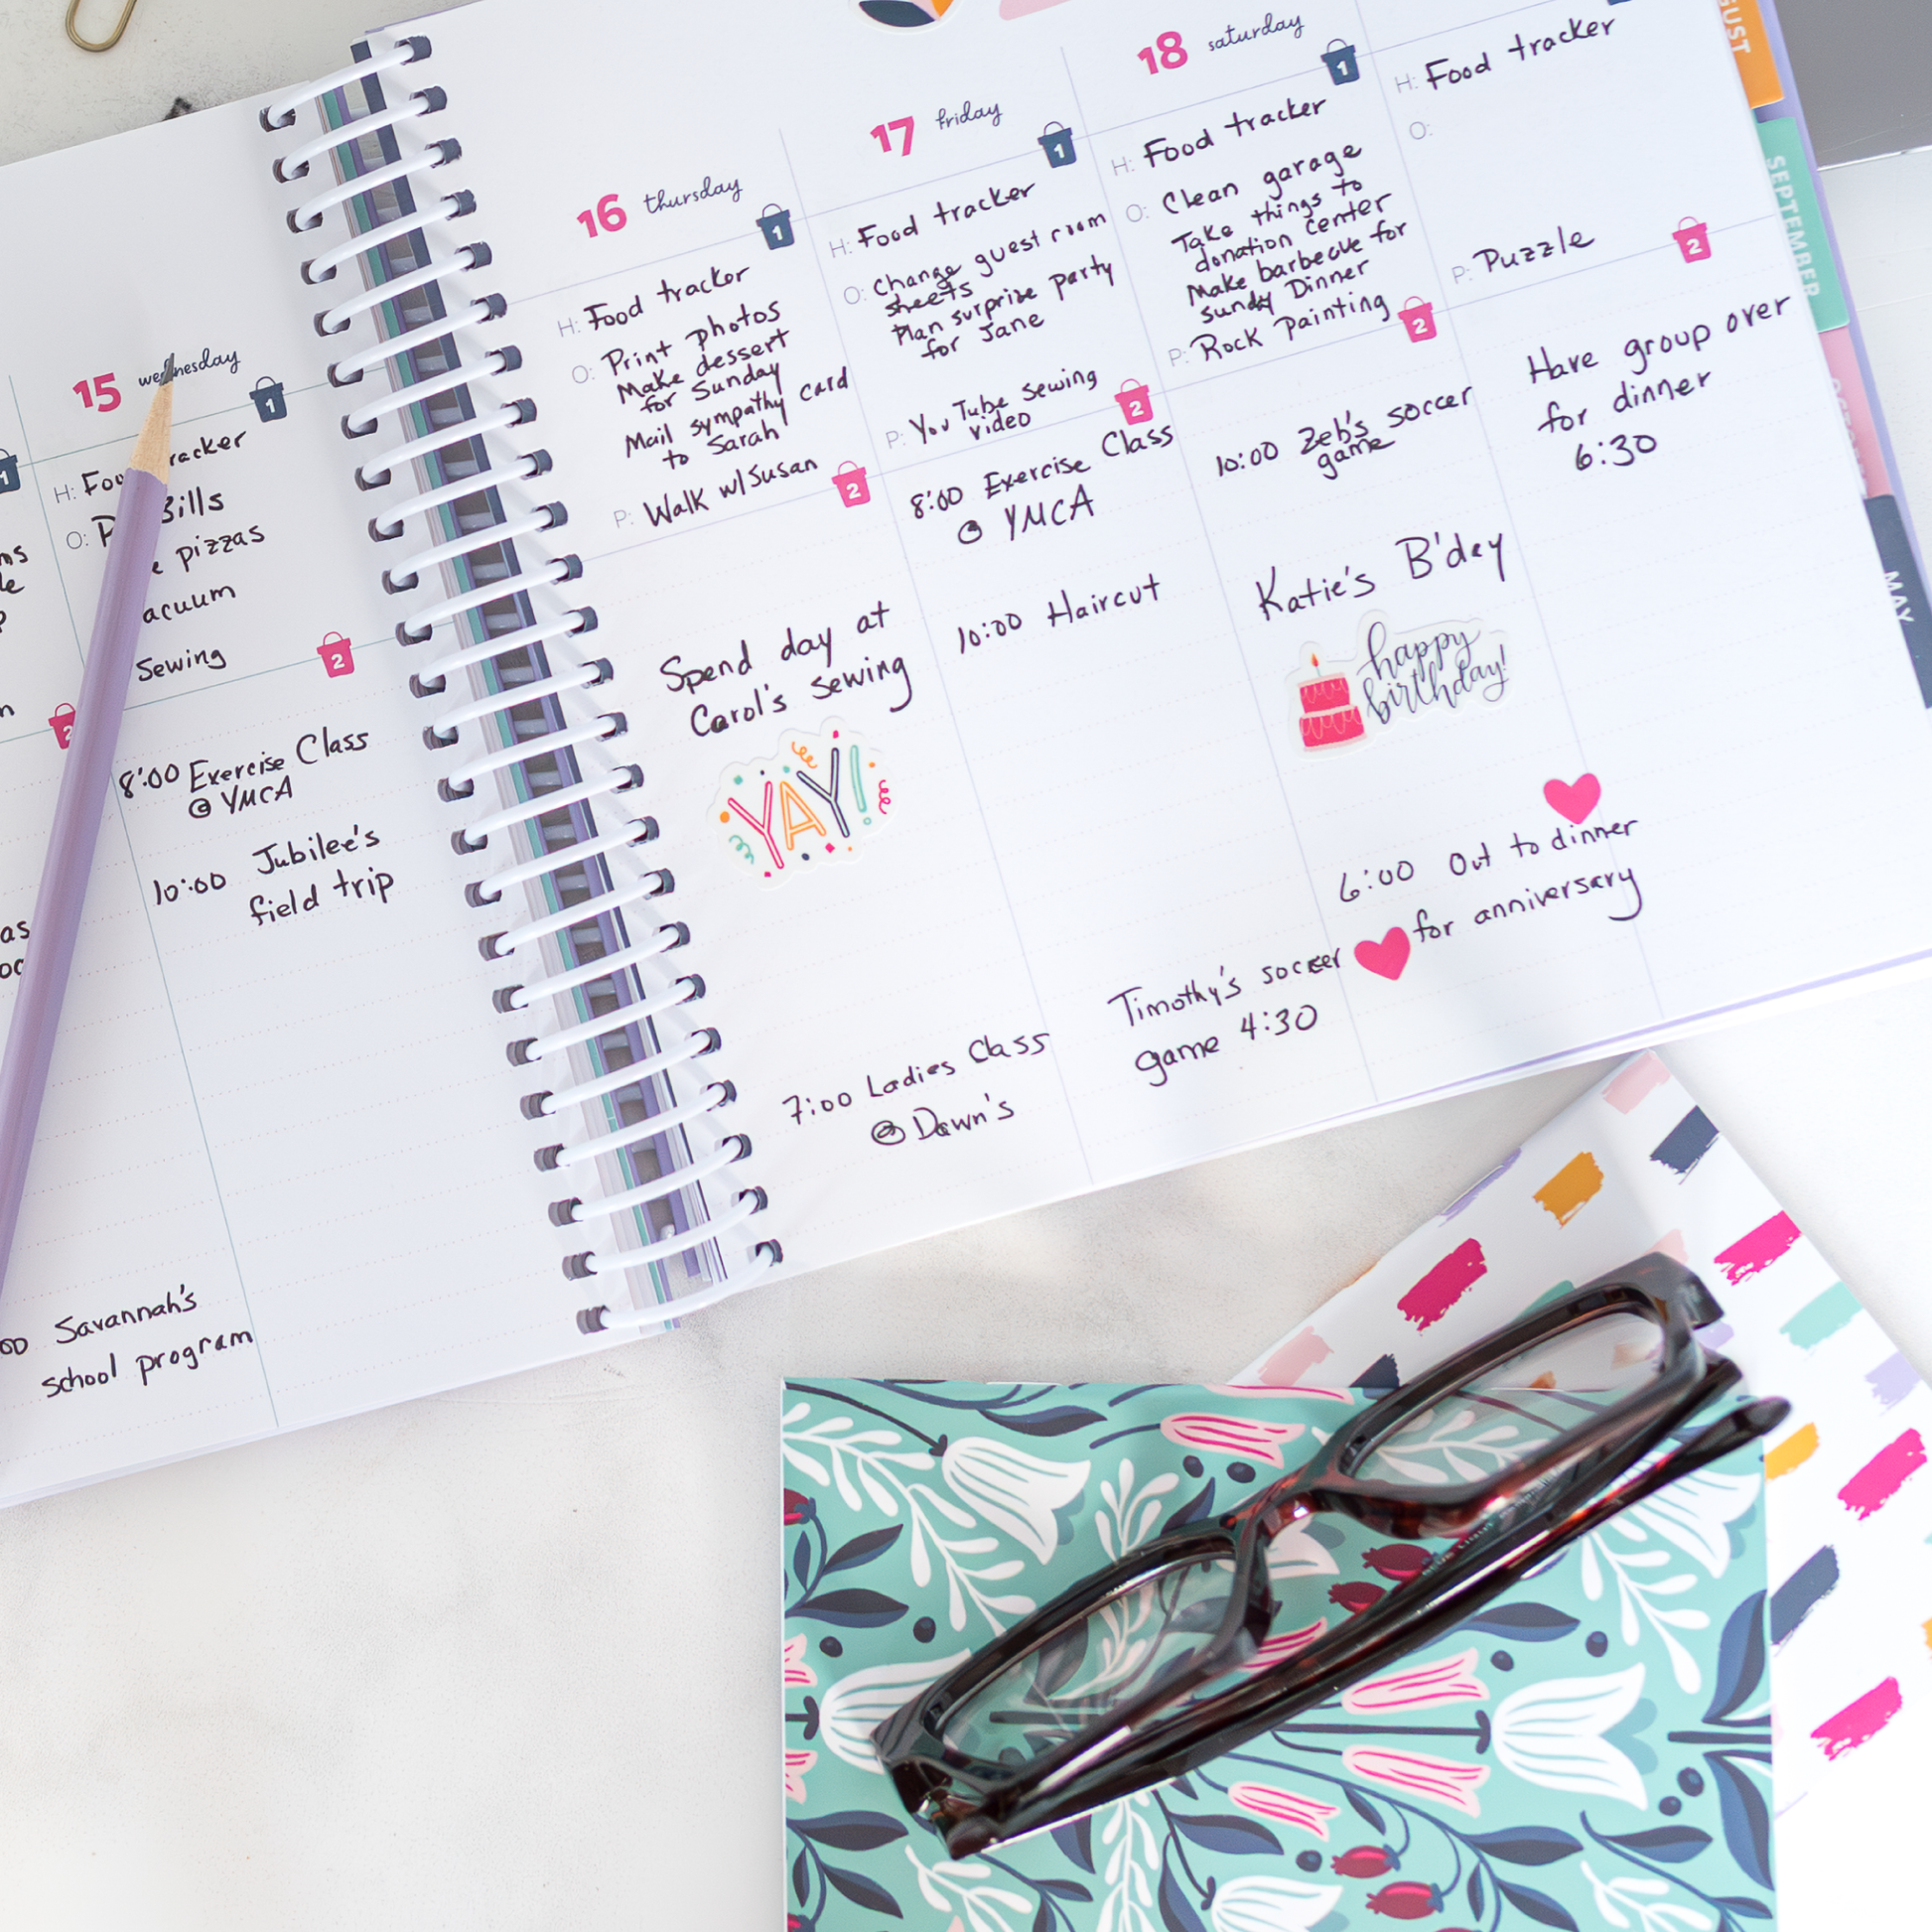 15 wednesday
1
H: Food tracker
O: Bills
pizzas
Sewing
2
8:00 Exercise Class
@ YMCA
10:00 Jubilee's
field trip
Savannah's
school program
16 thursday
1
H: Food tracker
O: Print photos
Make dessert
for Sunday
Mail sympathy card
to Sarah
P: Walk w/Susan
2
Spend day at
Carol's sewing
YAY!
7:00 Ladies Class
@ Dawn's
17 friday
1
H: Food tracker
O: Change guest room
sheets
Plan surprise party
for Jane
P: You Tube sewing
video
2
8:00 Exercise Class
@ YMCA
10:00 Haircut
Timothy's soccer
game 4:30
18 saturday
1
H: Food tracker
O: Clean garage
Take things to
donation center
Make barbecue for
Sunday Dinner
P: Rock Painting
2
10:00 Zeb's soccer
game
Katie's B'day
happy
birthday!
6:00 Out to dinner
for anniversary
H: Food tracker
O:
P: Puzzle
2
Have group over
for dinner
6:30
SEPTEMBER
MAY